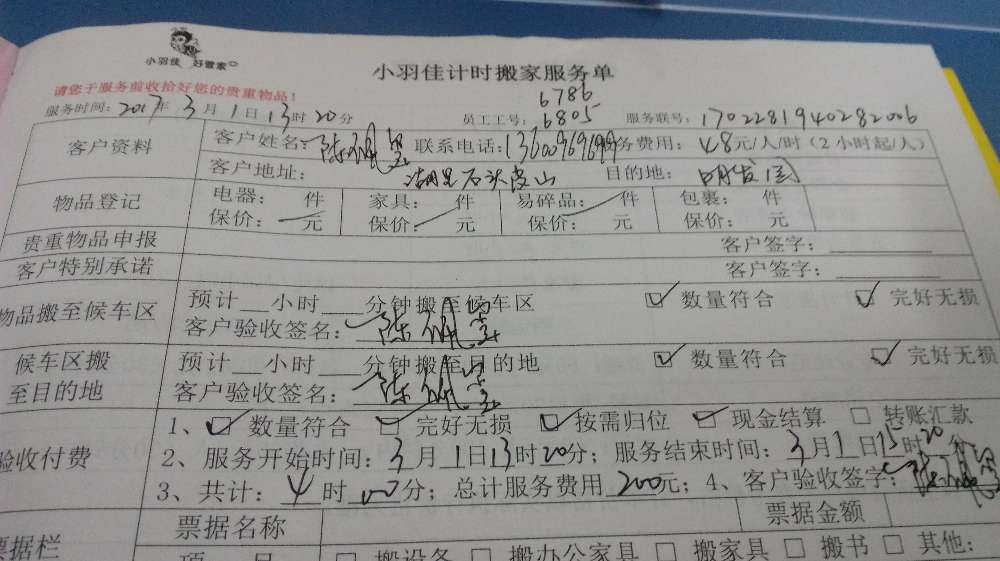 小羽佳 好管家
小羽佳计时搬家服务单
请您于服务前收拾好您的贵重物品！
6786
服务时间：2017年3月1日13时20分 员工工号：6805 服务联号：1702281940282006
客户资料 客户姓名：陈 联系电话：13600969699 务费用：48元/人/时（2小时起/人）
客户地址：湖里石头皮山 目的地：明发园
物品登记 电器： 件 家具： 件 易碎品： 件 包裹： 件
保价： 元 保价： 元 保价： 元 保价： 元
贵重物品申报 客户签字：
客户特别承诺 客户签字：
物品搬至候车区 预计 小时 分钟搬至候车区 ☑ 数量符合 ☑ 完好无损
客户验收签名：陈
候车区搬至目的地 预计 小时 分钟搬至目的地 ☑ 数量符合 ☑ 完好无损
客户验收签名：陈
验收付费 1、☑ 数量符合 ☑ 完好无损 ☑ 按需归位 ☑ 现金结算 □ 转账汇款
2、服务开始时间：3月1日13时20分；服务结束时间：3月1日15时20分
3、共计：4时00分；总计服务费用200元；4、客户验收签字：陈
票据栏 票据名称 票据金额
项 目 □ 搬设备 □ 搬办公家具 □ 搬家具 □ 搬书 □ 其他：